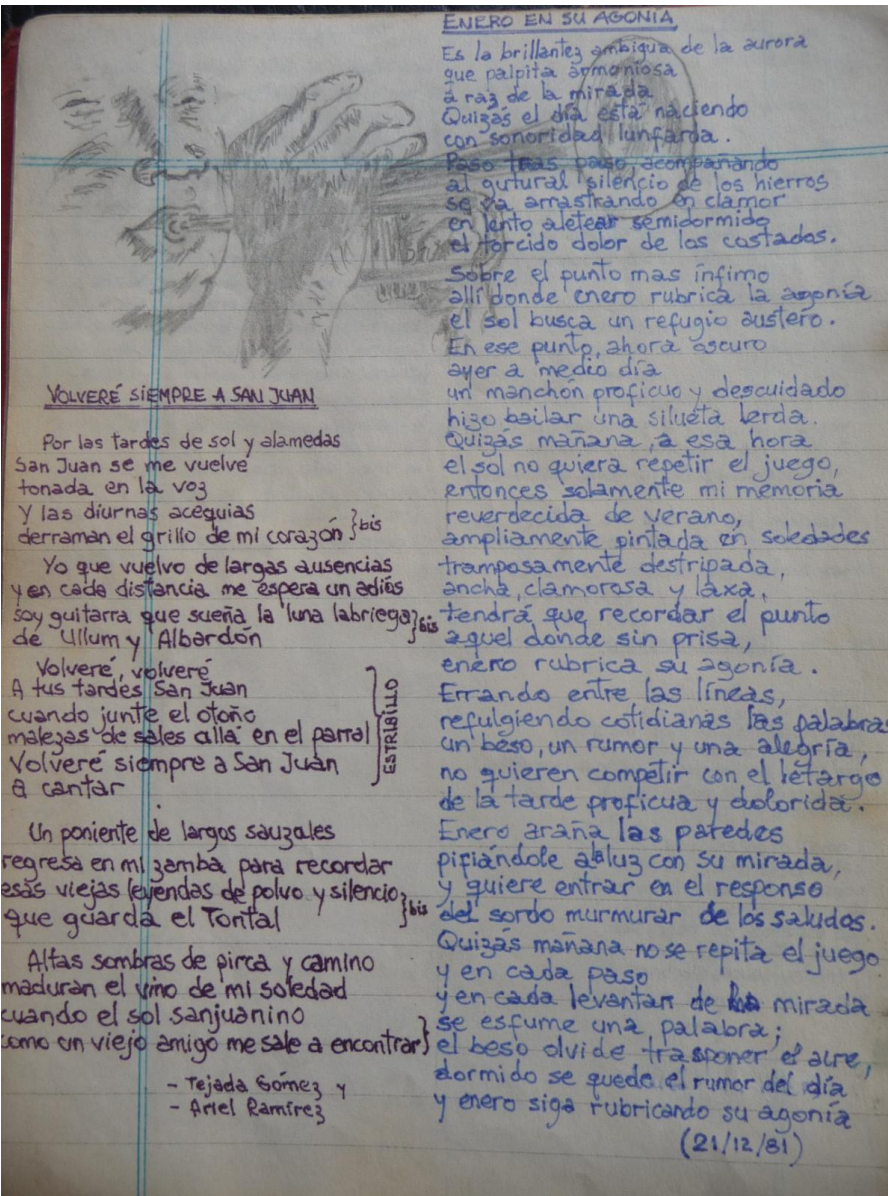 VOLVERÉ SIEMPRE A SAN JUAN
Por las tardes de sol y alamedas
San Juan se me vuelve
tonada en la voz
y las diurnas acequias
derraman el grillo de mi corazón } bis
Yo que vuelvo de largas ausencias
y en cada distancia me espera un adiós
soy guitarra que sueña la luna labriega } bis
de Ullum y Albardón
Volveré, volveré
A tus tardes San Juan
cuando junte el otoño
malezas de sales allá en el parral
Volveré siempre a San Juan
a cantar
ESTRIBILLO
Un poniente de largos sauzales
regresa en mi zamba para recordar
esas viejas leyendas de polvo y silencio
que guarda el Tontal } bis
Altas sombras de pirca y camino
maduran el vino de mi soledad
cuando el sol sanjuanino
como un viejo amigo me sale a encontrar }
- Tejada Gómez y
- Ariel Ramírez
ENERO EN SU AGONIA
Es la brillantez ambigua de la aurora
que palpita armoniosa
a raz de la mirada
Quizás el día está naciendo
con sonoridad lunfarda.
Paso tras paso, acompañando
al gutural silencio de los hierros
se va arrastrando en clamor
en lento aletear semidormido
el torcido dolor de los costados.
Sobre el punto mas ínfimo
allí donde enero rubrica la agonía
el sol busca un refugio austero.
En ese punto, ahora oscuro
ayer a medio día
un manchón proficuo y descuidado
hizo bailar una silueta lerda.
Quizás mañana, a esa hora
el sol no quiera repetir el juego,
entonces solamente mi memoria
reverdecida de verano,
ampliamente pintada en soledades
tramposamente destripada,
ancha, clamorosa y laxa,
tendrá que recordar el punto
aquel donde sin prisa,
enero rubrica su agonía.
Errando entre las líneas,
refulgiendo cotidianas las palabras
un beso, un rumor y una alegría,
no quieren competir con el letargo
de la tarde proficua y dolorida.
Enero araña las paredes
pifiándole a luz con su mirada,
y quiere entrar en el responso
del sordo murmurar de los saludos.
Quizás mañana no se repita el juego
y en cada paso
y en cada levantar de mirada
se esfume una palabra;
el beso olvide trasponer el aire,
dormido se quede el rumor del día
y enero siga rubricando su agonía
(21/12/81)